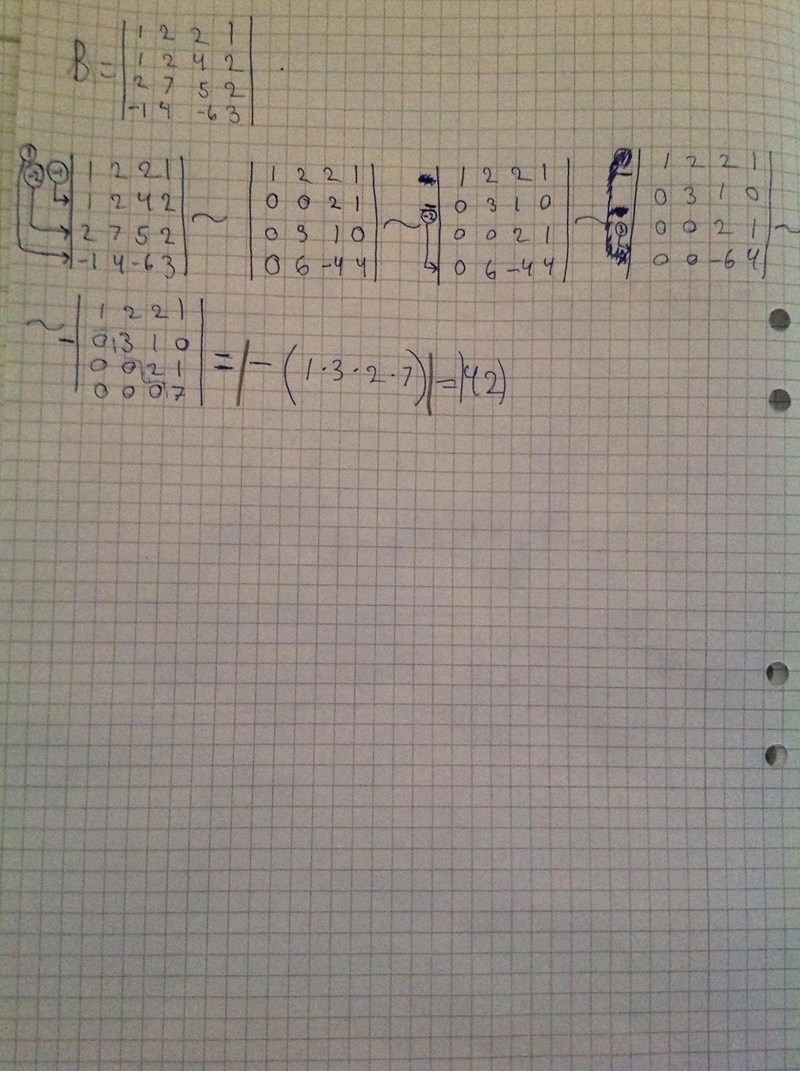 B = | 1 2 2 1 |
| 1 2 4 2 |
| 2 7 5 2 |
| -1 4 -6 3 |
① -2 -1 | 1 2 2 1 |
| 1 2 4 2 |
| 2 7 5 2 |
| -1 4 -6 3 |
~
| 1 2 2 1 |
| 0 0 2 1 |
| 0 3 1 0 |
| 0 6 -4 4 |
~
-2 | 1 2 2 1 |
| 0 3 1 0 |
| 0 0 2 1 |
| 0 6 -4 4 |
~
| 1 2 2 1 |
| 0 3 1 0 |
| 0 0 2 1 |
| 0 0 -6 4 |
~
~ - | 1 2 2 1 |
| 0 3 1 0 |
| 0 0 2 1 |
| 0 0 0 7 |
= |-(1·3·2·7)| = |42|